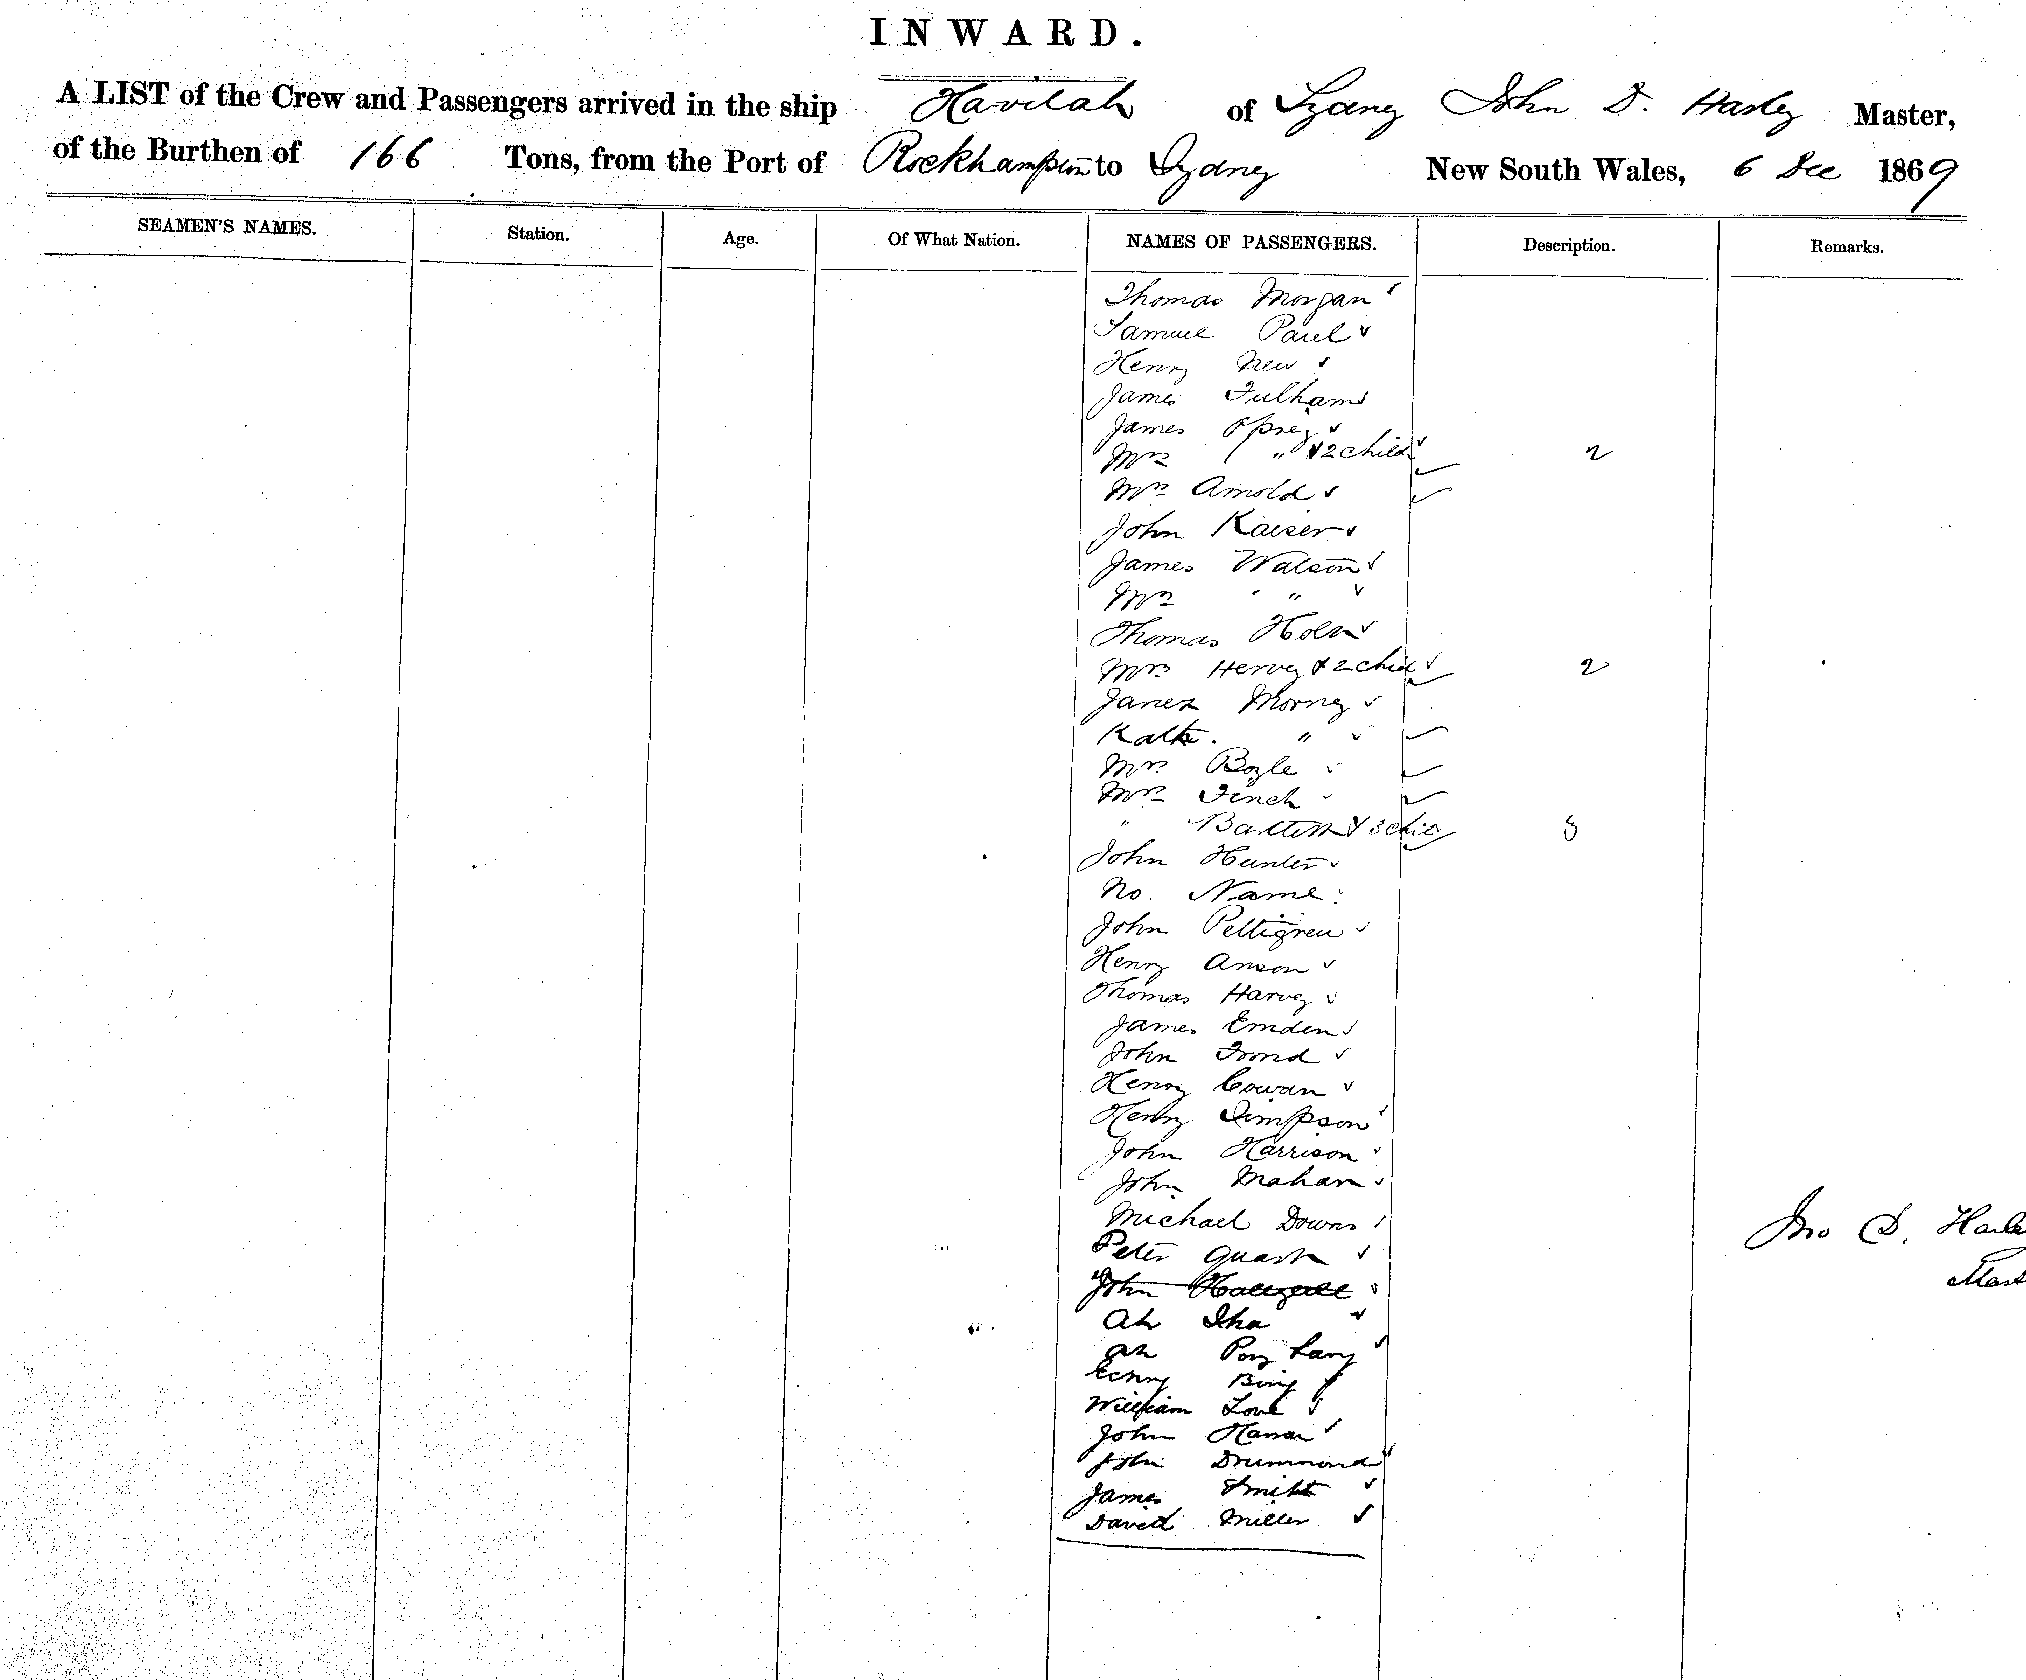 INWARD.
A LIST of the Crew and Passengers arrived in the ship Havilah of Sydney John D. Harley Master,
of the Burthen of 166 Tons, from the Port of Rockhampton to Sydney New South Wales, 6 Dec 1869
SEAMEN'S NAMES. Station. Age. Of What Nation. NAMES OF PASSENGERS. Description. Remarks.
Thomas Morgan
Samuel Paul
Henry New
James Fulham
James
Mrs " & 2 child 2
Mrs Arnold
John Kaiser
James Watson
Mrs " "
Thomas Holm
Mrs Hervey & 2 chil 2
James Morney
Kate. "
Mrs Boyle
Mrs Finch
" & 3 chil 3
John Hunter
No. Name
John Pettigrew
Henry Anson
Thomas Harvey
James Emden
John Fornd
Henry Cowan
Henry Simpson
John Harrison
John Mahan
Michael Downs
Peter Quash
John
Ah Sha
Ah Pong Lang
Bing
William Love
John
John Drummond
James Smith
David Miller
Jno D. Harle
Mast